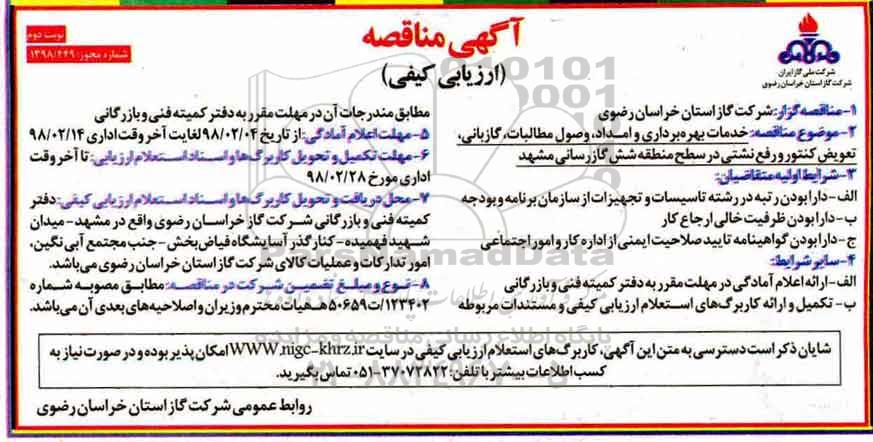 آگهی مناقصه
(ارزیابی کیفی)
نوبت دوم
شماره مجوز: ۱۳۹۸/۴۴۹
شرکت ملی گاز ایران
شرکت گاز استان خراسان رضوی
۱- مناقصه‌گزار: شرکت گاز استان خراسان رضوی
۲- موضوع مناقصه: خدمات بهره‌برداری و امداد، وصول مطالبات، گازبانی،
تعویض کنتور و رفع نشتی در سطح منطقه شش گازرسانی مشهد
۳- شرایط اولیه متقاضیان:
الف- دارا بودن رتبه در رشته تاسیسات و تجهیزات از سازمان برنامه و بودجه
ب- دارا بودن ظرفیت خالی ارجاع کار
ج- دارا بودن گواهینامه تایید صلاحیت ایمنی از اداره کار و امور اجتماعی
۴- سایر شرایط:
الف- ارائه اعلام آمادگی در مهلت مقرر به دفتر کمیته فنی و بازرگانی
ب- تکمیل و ارائه کاربرگ‌های استعلام ارزیابی کیفی و مستندات مربوطه
مطابق مندرجات آن در مهلت مقرر به دفتر کمیته فنی و بازرگانی
۵- مهلت اعلام آمادگی: از تاریخ ۹۸/۰۲/۰۴ لغایت آخر وقت اداری ۹۸/۰۲/۱۴
۶- مهلت تکمیل و تحویل کاربرگ‌ها و اسناد استعلام ارزیابی: تا آخر وقت
اداری مورخ ۹۸/۰۲/۲۸
۷- محل دریافت و تحویل کاربرگ‌ها و اسناد استعلام ارزیابی کیفی: دفتر
کمیته فنی و بازرگانی شرکت گاز خراسان رضوی واقع در مشهد- میدان
شهید فهمیده- کنار گذر آسایشگاه فیاض‌بخش- جنب مجتمع آبی نگین،
امور تدارکات و عملیات کالای شرکت گاز استان خراسان رضوی می‌باشد.
۸- نوع و مبلغ تضمین شرکت در مناقصه: مطابق مصوبه شماره
۱۲۳۴۰۲/ت۵۰۶۵۹هـ هیات محترم وزیران و اصلاحیه‌های بعدی آن می‌باشد.
شایان ذکر است دسترسی به متن این آگهی، کاربرگ‌های استعلام ارزیابی کیفی در سایت WWW.nigc-khrz.ir امکان‌پذیر بوده و در صورت نیاز به
کسب اطلاعات بیشتر با تلفن: ۳۷۰۷۲۸۲۲-۰۵۱ تماس بگیرید.
روابط عمومی شرکت گاز استان خراسان رضوی